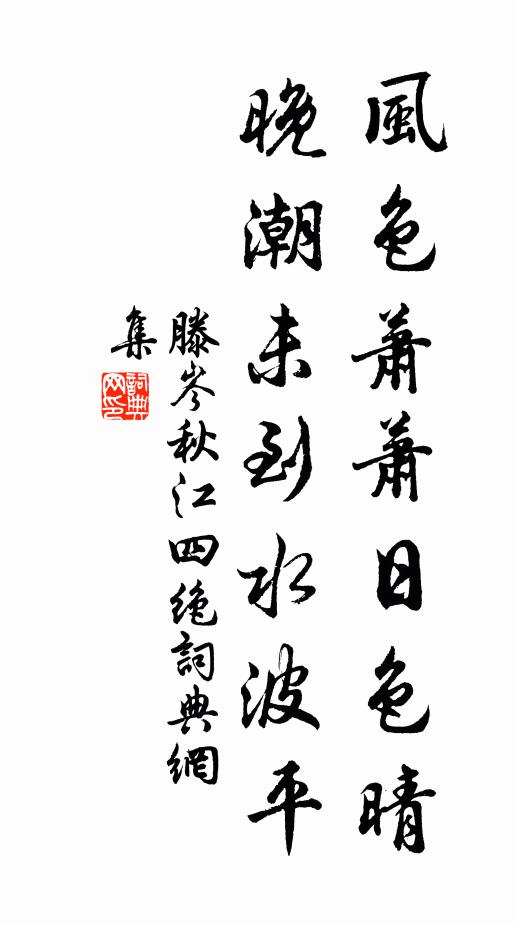 風色蕭蕭日色晴
晚潮未到水波平
滕岑秋江四絶詞典網
集
詞典
网印